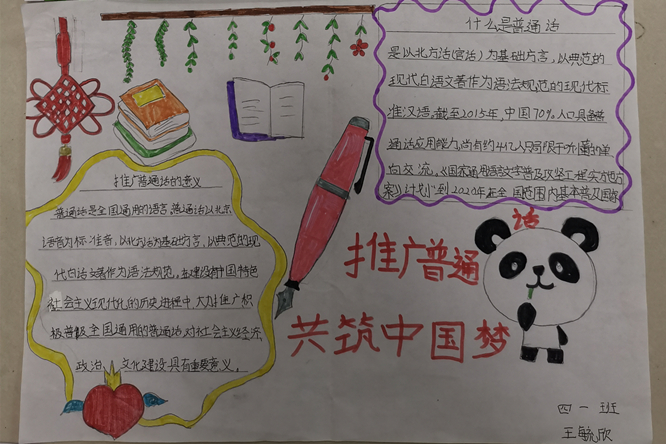 什么是普通话
是以北方话(官话)为基础方言,以典范的
现代白话文著作为语法规范的现代标
准汉语。截至2015年,中国70%人口具备普
通话应用能力,尚有约4亿人只局限于听懂的单
向交流。《国家通用语言文字普及攻坚工程实施方
案》计划“到2020年在全国范围内基本普及国家
推广普通话的意义
普通话是全国通用的语言,普通话以北京
语音为标准音,以北方话为基础方言,以典范的现
代白话文著作为语法规范。在建设有中国特色
社会主义现代化的历史进程中,大力推广积
极普及全国通用的普通话,对社会主义经济、
政治、文化建设具有重要意义。
推广普通话
共筑中国梦
四一班
王毓欣